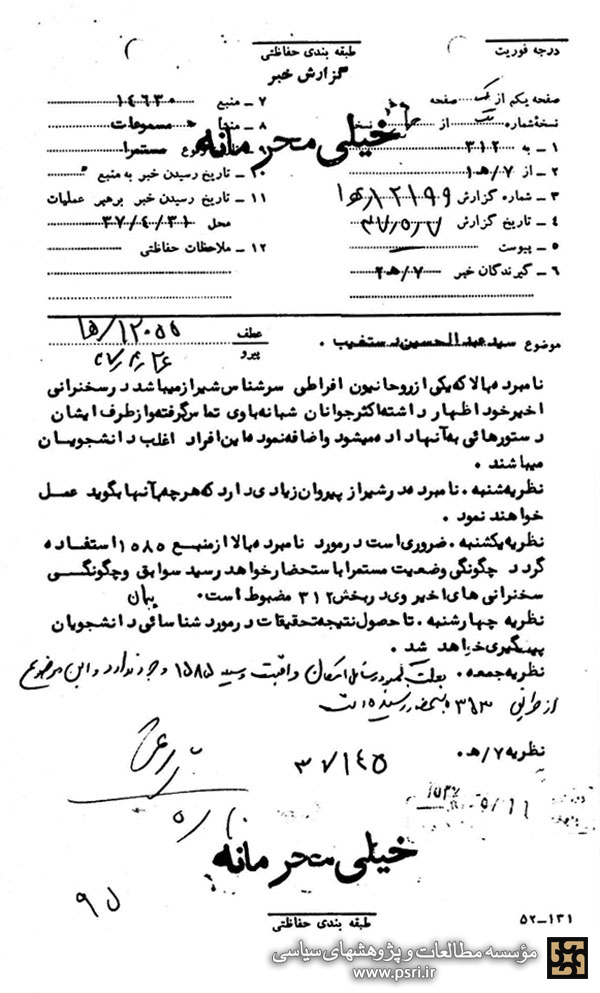 درجه فوریت
طبقه بندی حفاظتی
گزارش خبر
صفحه یکم از یک صفحه
نسخه شماره از نسخه
۱ – به ۳۱۲
۲ – از ۷/هـ۱
۳ – شماره گزارش ۱۲۱۹۹/هـ۱
۴ – تاریخ گزارش
۵ – پیوست
۶ – گیرندگان خبر ۷/هـ۲
۷ – منبع ۱۴۶۳۰
۸ – منشا مسموعات
وقوع مستمرا
۱۰ – تاریخ رسیدن خبر به منبع
۱۱ – تاریخ رسیدن خبر برهبر عملیات
محل ۳۷/۴/۳۱
۱۲ – ملاحظات حفاظتی
خیلی محرمانه
موضوع سید عبدالحسین دستغیب .
عطف
پیرو
۱۲۰۵۵/هـ۱
نامبرده بالا که یکی از روحانیون افراطی سرشناس شیراز میباشد در سخنرانی
اخیر خود اظهار داشته اکثر جوانان شبانه با وی تماس گرفته و از طرف ایشان
دستورهائی به آنها داده میشود و اضافه نموده این افراد اغلب دانشجویان
میباشند .
نظریه شنبه . نامبرده در شیراز پیروان زیادی دارد که هرچه بآنها بگوید عمل
خواهند نمود .
نظریه یکشنبه . ضروری است در مورد نامبرده بالا از منبع ۱۵۸۵ استفاده
گردد چگونگی وضعیت مستمرا باستحضار خواهد رسید سوابق و چگونگی
سخنرانی های اخیر وی در بخش ۳۱۲ مضبوط است .
نظریه چهارشنبه . تا حصول نتیجه تحقیقات در مورد شناسائی دانشجویان
پیگیری خواهد شد .
نظریه جمعه . بعلت کمبود وسائل امکان مراقبت وسیله ۱۵۸۵ وجود ندارد و این موضوع
نظریه ۷/هـ .
۳۷۱۴۵
خیلی محرمانه
۹۵
طبقه بندی حفاظتی
۵۲–۱۳۱
مؤسسه مطالعات و پژوهشهای سیاسی
www.psri.ir